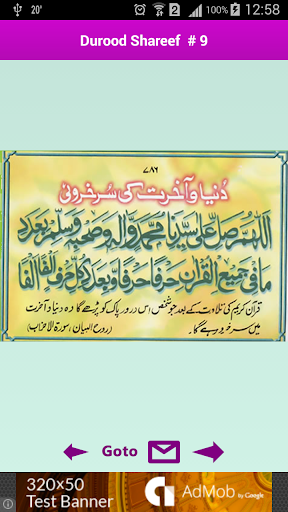 20°
100%
12:58
Durood Shareef # 9
٧٨٦
دُنیا و آخرت کی سُرخروئی
اَللّٰهُمَّ صَلِّ عَلٰى سَيِّدِنَا مُحَمَّدٍ وَّاٰلِهٖ وَصَحْبِهٖ وَسَلِّمْ بِعَدَدِ
مَا فِیْ جَمِيْعِ الْقُرْاٰنِ حَرْفًا حَرْفًا وَّبِعَدَدِ كُلِّ حَرْفٍ اَلْفًا اَلْفًا
قرآن کریم کی تلاوت کے بعد جو شخص اس درود پاک کو پڑھے گا وہ دنیا و آخرت
میں سرخرو رہے گا۔ (روح البیان، سورۃ الاحزاب)
Goto
320x50
Test Banner
AdMob by Google